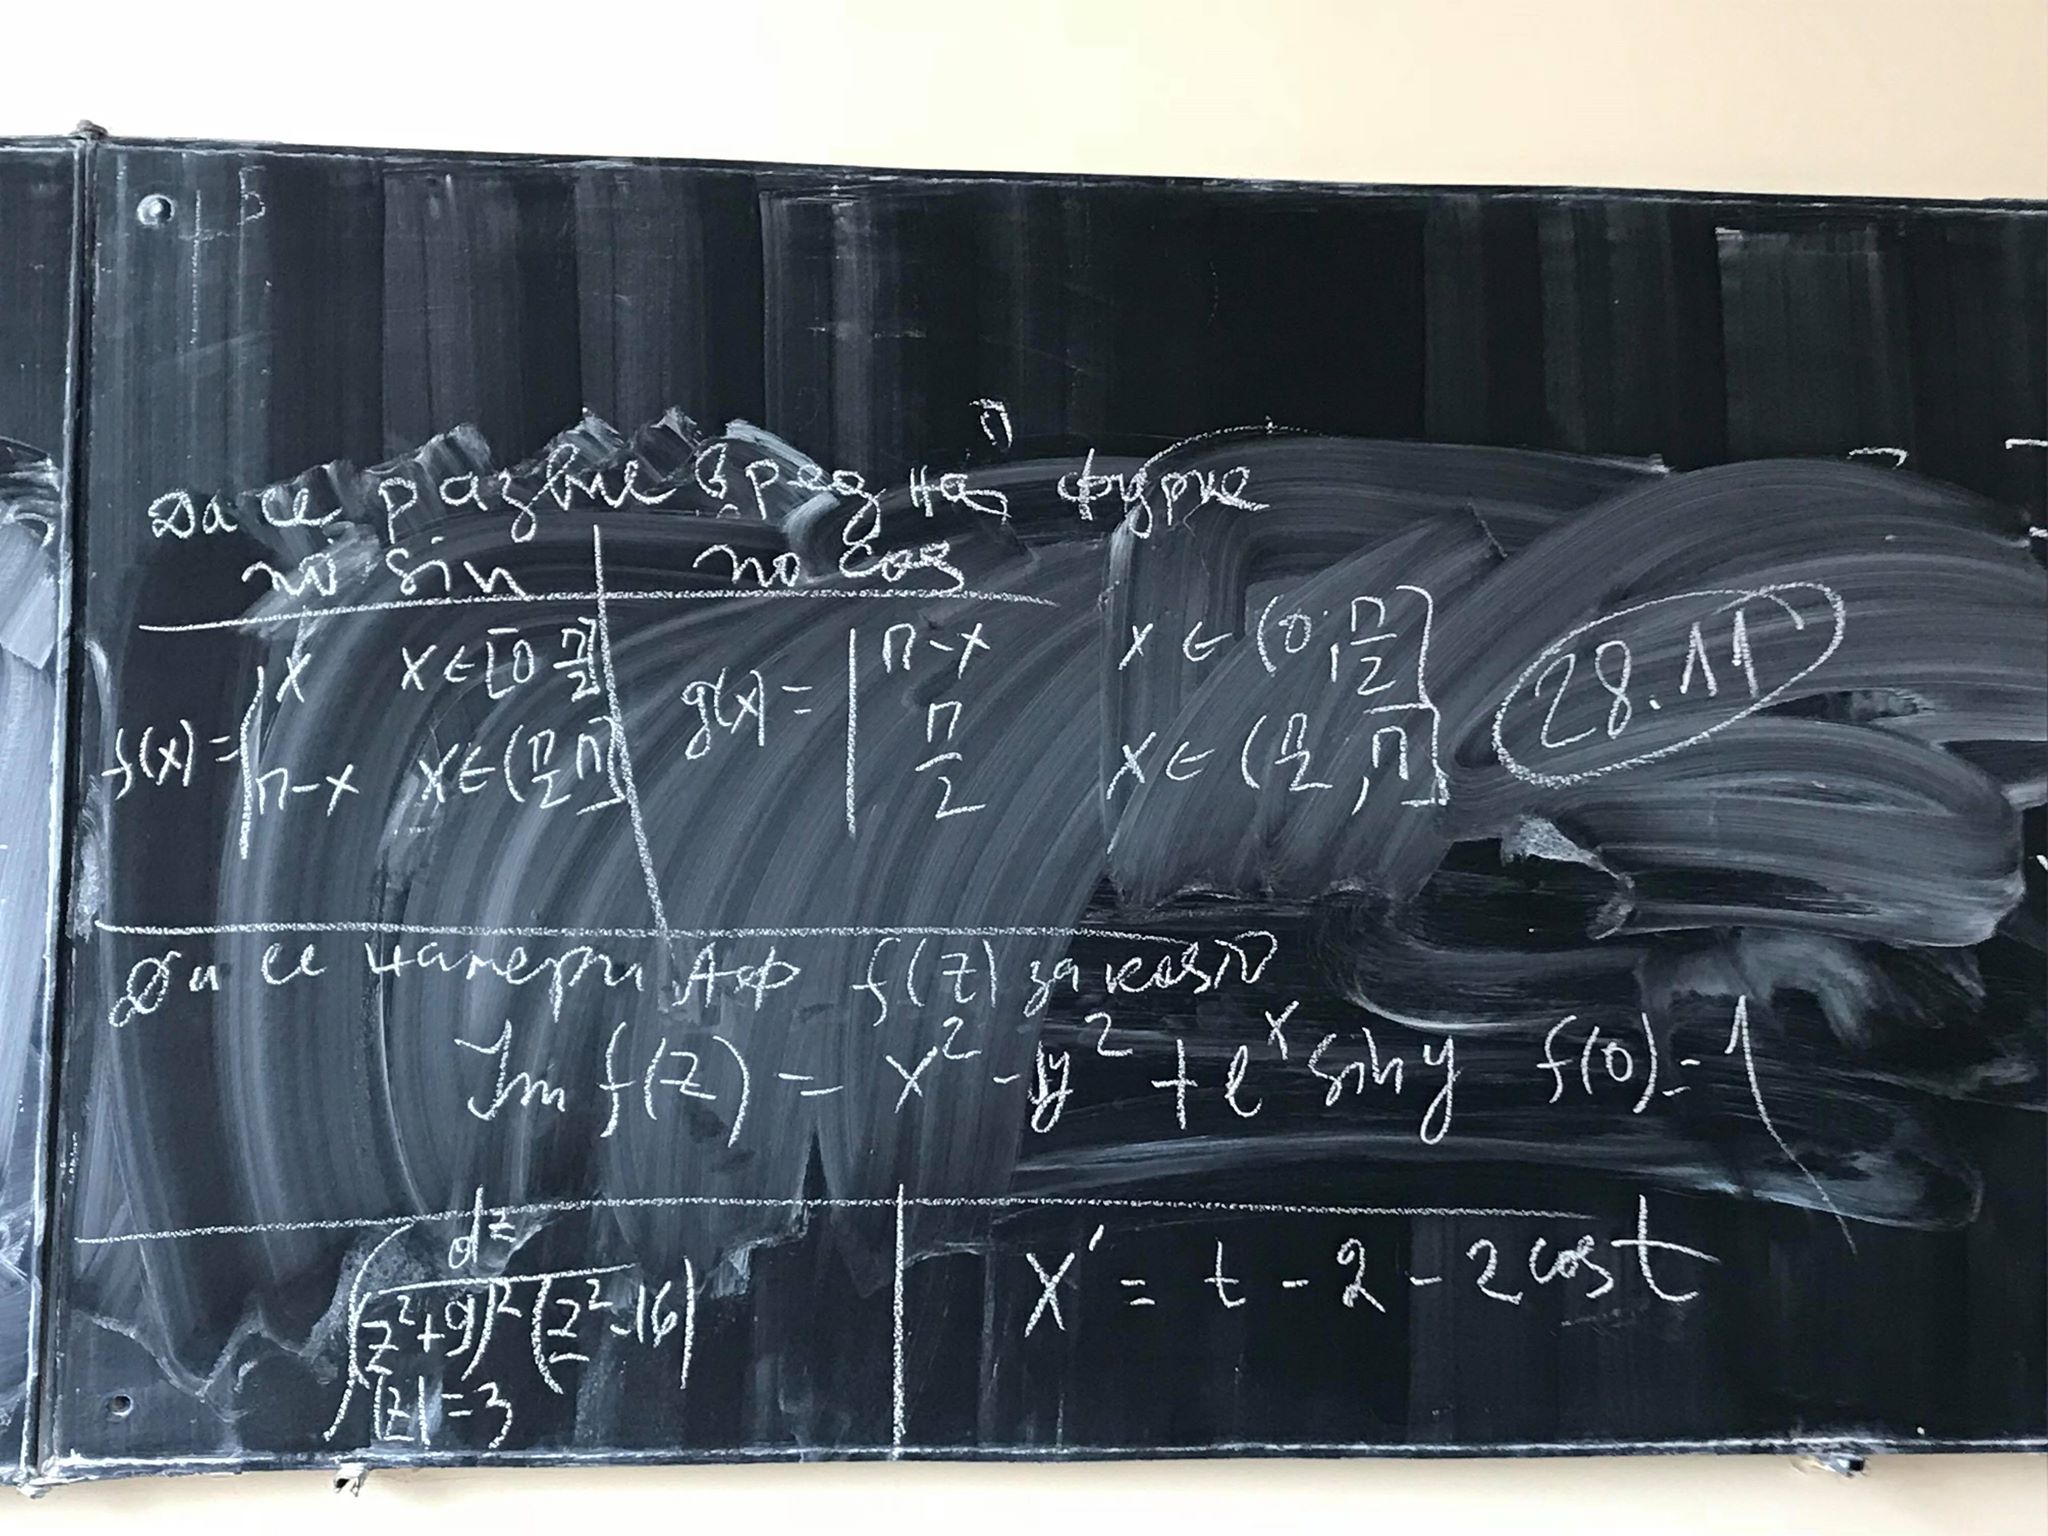 Да се развие в ред на Фурие
по sin по cos
f(x) = | x x ∈ [0 π/2] g(x) = | π-x x ∈ (0, π/2]
| π-x x ∈ (π/2 π] | π/2 x ∈ (π/2, π]
28.11
Да се намери АФ f(z) за която
Im f(z) = x² - y² + e^x sin y f(0) = 1
∫ dz / (z²+9)² (z²-16) x' = t - 2 - 2 cos t
|z| = 3